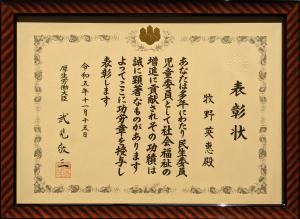 表彰状
牧野英恵殿
あなたは多年にわたり民生委員
児童委員として社会福祉の
増進に貢献されその功績は
誠に顕著なものがあります
よってここに功労章を授与し
表彰します
令和五年十一月十五日
厚生労働大臣 武見敬三